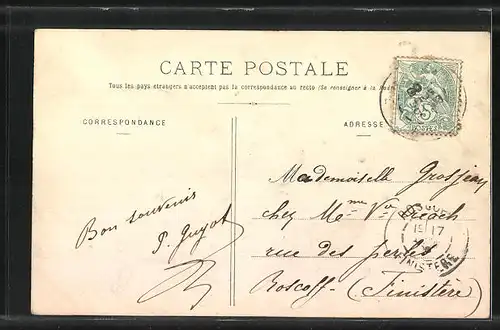 CARTE POSTALE
Tous les pays étrangers n'acceptent pas la correspondance au recto (Se renseigner à la Poste)
CORRESPONDANCE
ADRESSE
5
POSTES
Bon souvenir
P. Guyot
Mademoiselle Grosjean
chez Mme Vve
rue des perles
Roscoff - (Finistère)
17
FINISTERE